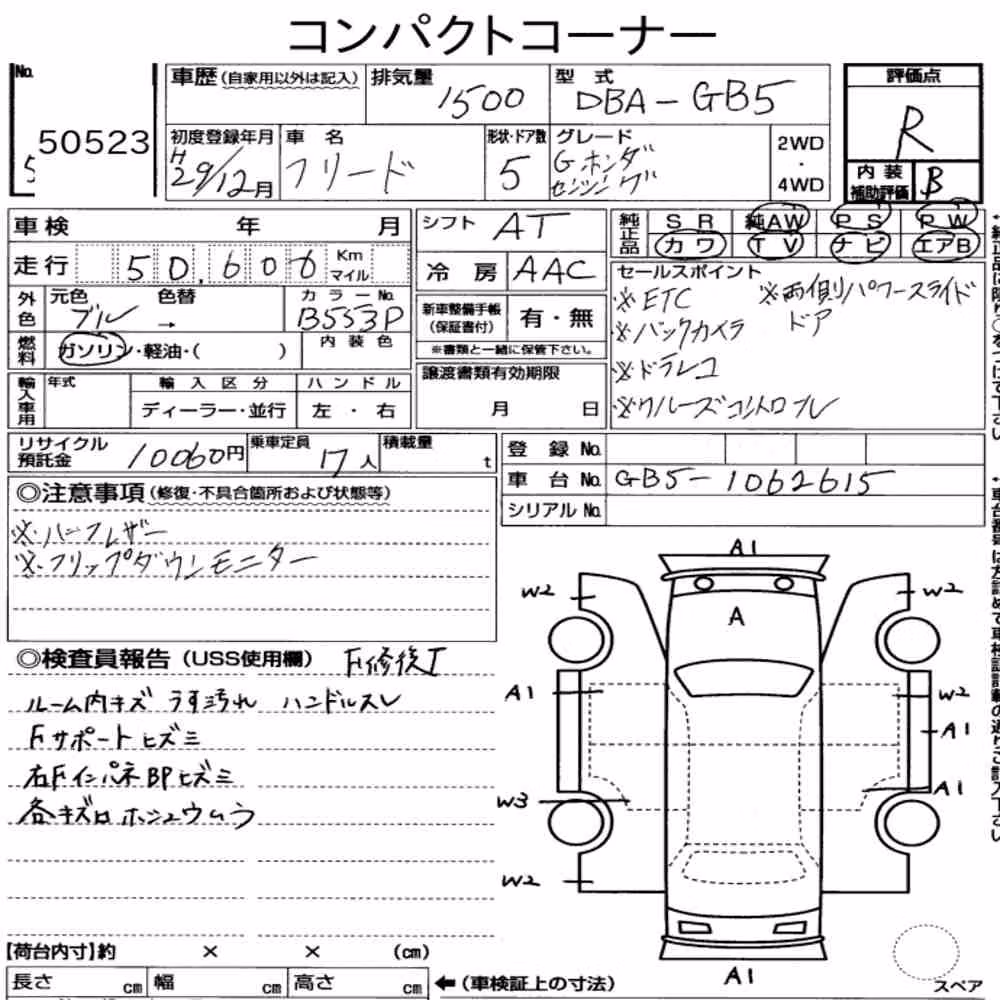 コンパクトコーナー
No.
50523
5
車歴(自家用以外は記入)
排気量
1500
型式
DBA-GB5
評価点
R
初度登録年月
H29/12月
車名
フリード
形状・ドア数
5
グレード
Gホンダ
センシング
2WD
・
4WD
内装
補助評価
B
車検 年 月
シフト AT
純正品
SR 純AW PS PW
カワ TV ナビ エアB
走行 50,606 Km マイル
冷房 AAC
セールスポイント
※ETC ※両側パワースライド
ドア
※バックカメラ
※ドラレコ
※クルーズコントロール
外色
元色 色替 カラーNo.
ブルー → B553P
新車整備手帳
(保証書付)
有・無
※書類と一緒に保管下さい。
燃料
ガソリン・軽油・( )
内装色
譲渡書類有効期限
月 日
輸入車用
年式 輸入区分 ハンドル
ディーラー・並行 左・右
リサイクル
預託金
10060円
乗車定員
人
積載量
t
登録No.
車台No. GB5-1062615
シリアルNo.
◎注意事項(修復・不具合箇所および状態等)
※ハーフレザー
※フリップダウンモニター
◎検査員報告(USS使用欄)
ルーム内キズ うす汚れ ハンドルスレ
Fサポートヒズミ
右FインパネBPヒズミ
各キズロホシュウムラ
A1
W2 W2
A
A1 W2
A1
W3 A1
W2
A1
スペア
【荷台内寸】約 × × (cm)
長さ cm 幅 cm 高さ cm ←(車検証上の寸法)